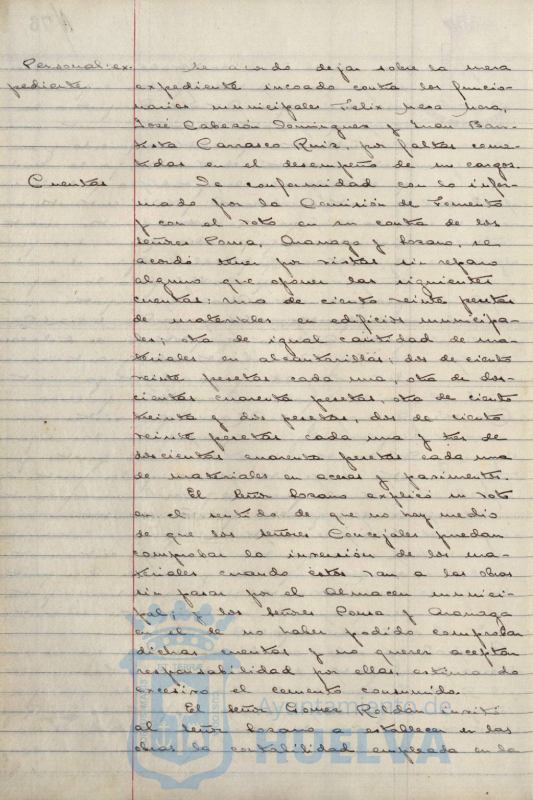 Personal: ex-
pediente.
Se acordo dejar sobre la mesa
expediente incoado contra los funcio-
narios municipales Felix Mesa Mora,
José Cabezón Dominguez y Juan Bau-
tista Carrasco Ruiz, por faltas come-
tidas en el desempeño de su cargos.
Cuentas
De conformidad con lo infor-
mado por la Comisión de Fomento
y con el voto en su contra de los
señores Ponsa, Aranaga y Lozano, se
acordó tener por vistas sin reparo
alguno que oponer las siguientes
cuentas: una de ciento veinte pesetas
de materiales en edificios municipa-
les; otra de igual cantidad de ma-
teriales en alcantarillas; dos de ciento
veinte pesetas cada una, otra de dos-
cientas cuarenta pesetas, otra de ciento
treinta y dos pesetas, dos de ciento
veinte pesetas cada una y tres de
doscientas cuarenta pesetas cada una
de materiales en aceras y pavimentos.
El Señor Lozano explicó su voto
en el sentido de que no hay medio
de que los señores Concejales puedan
comprobar la inversión de los ma-
teriales cuando éstos van a las obras
sin pasar por el Almacen munici-
pal; y los señores Ponsa y Aranaga
en el de no haber podido comprobar
dichas cuentas y no querer aceptar
responsabilidad por ellas, estimando
excesivo el cemento consumido.
El Señor Gomez Roldán invitó
al Señor Lozano a establecer en las
obras la contabilidad empleada en la
Ayuntamiento de
HUELVA